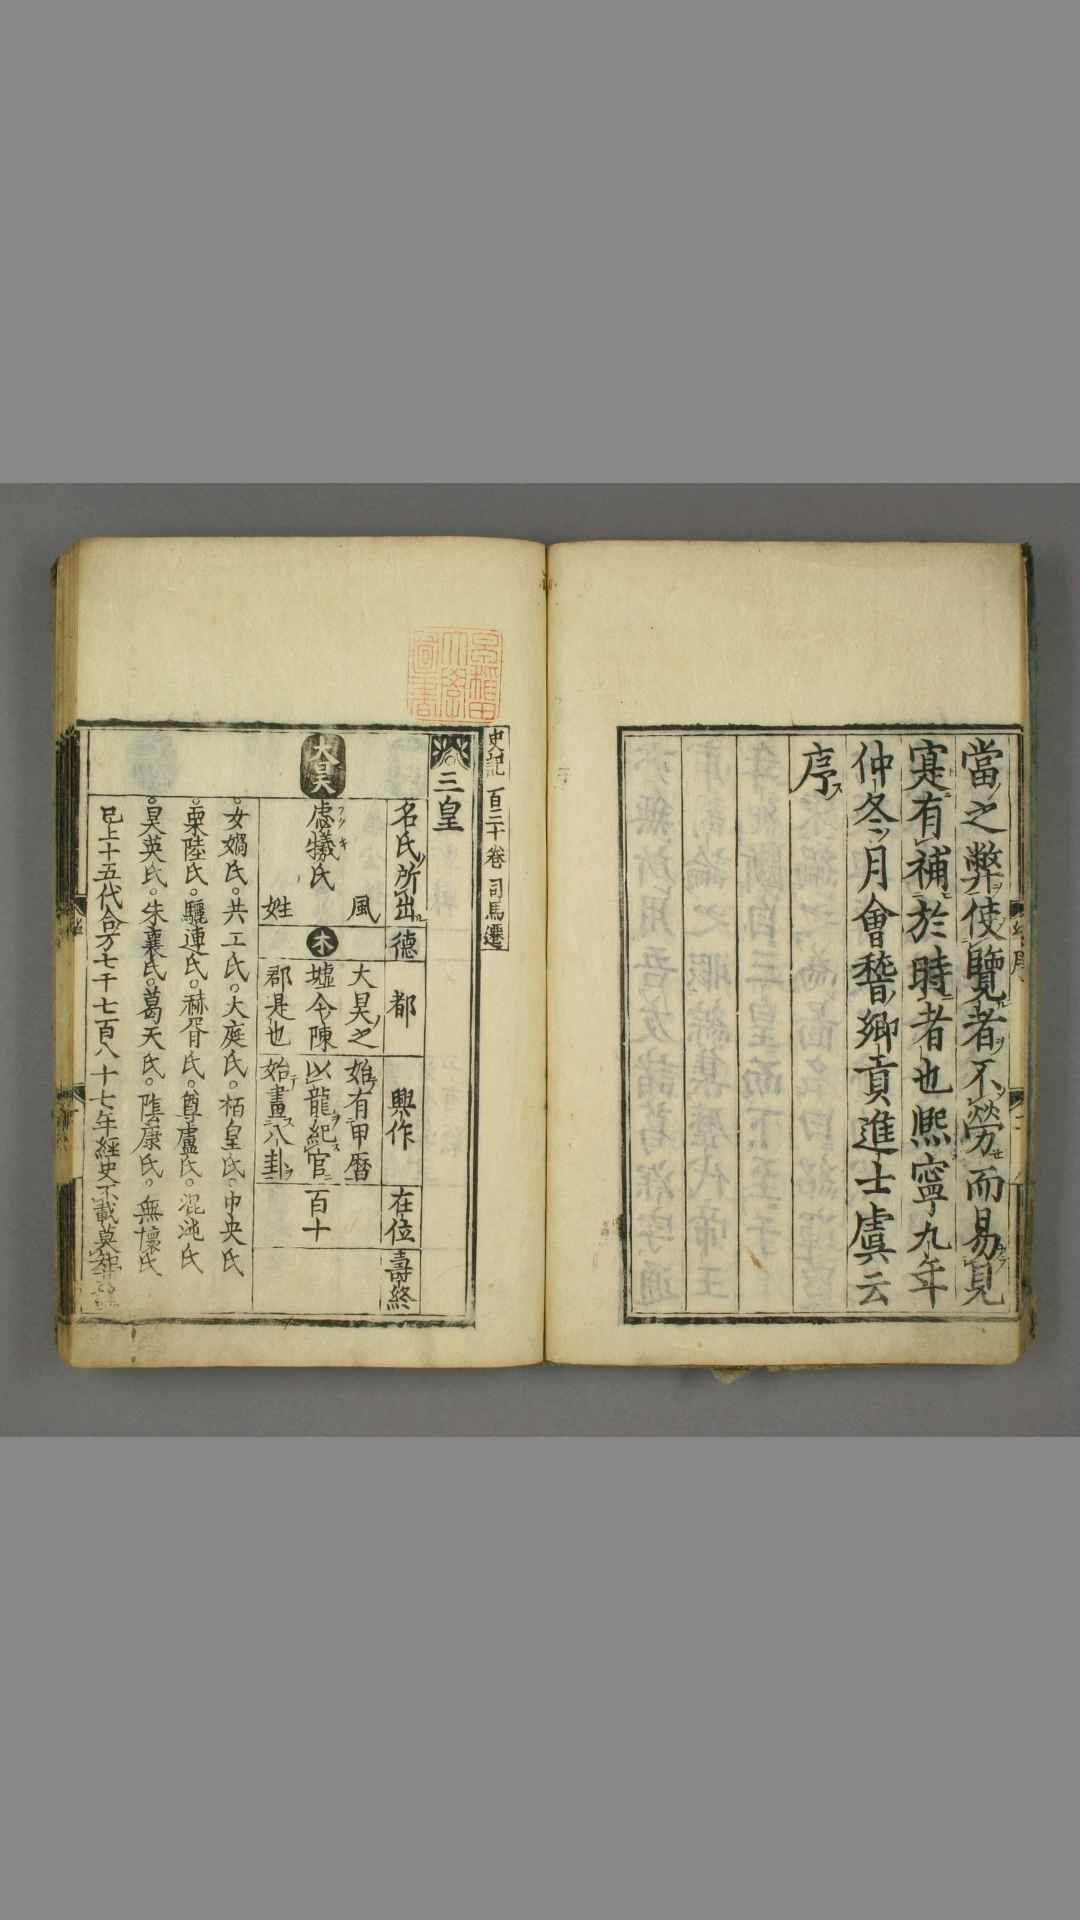 當之弊使覽者不勞而易見
寔有補於時者也熈寧九年
仲冬月會稽鄉貢進士虞云
序
史記 百三十卷 司馬遷
三皇
名氏所出 德 都 興作 在位 壽終
大昊
風 大昊之 始有甲曆
虙犧氏 木 墟今陳 以龍紀官 百十
姓 郡是也 始畫八卦
女媧氏。共工氏。大庭氏。栢皇氏。中央氏
栗陸氏。驪連氏。赫胥氏。尊盧氏。混沌氏
昊英氏。朱襄氏。葛天氏。陰康氏。無懷氏
已上十五代合万七千七百八十七年經史不載莫知